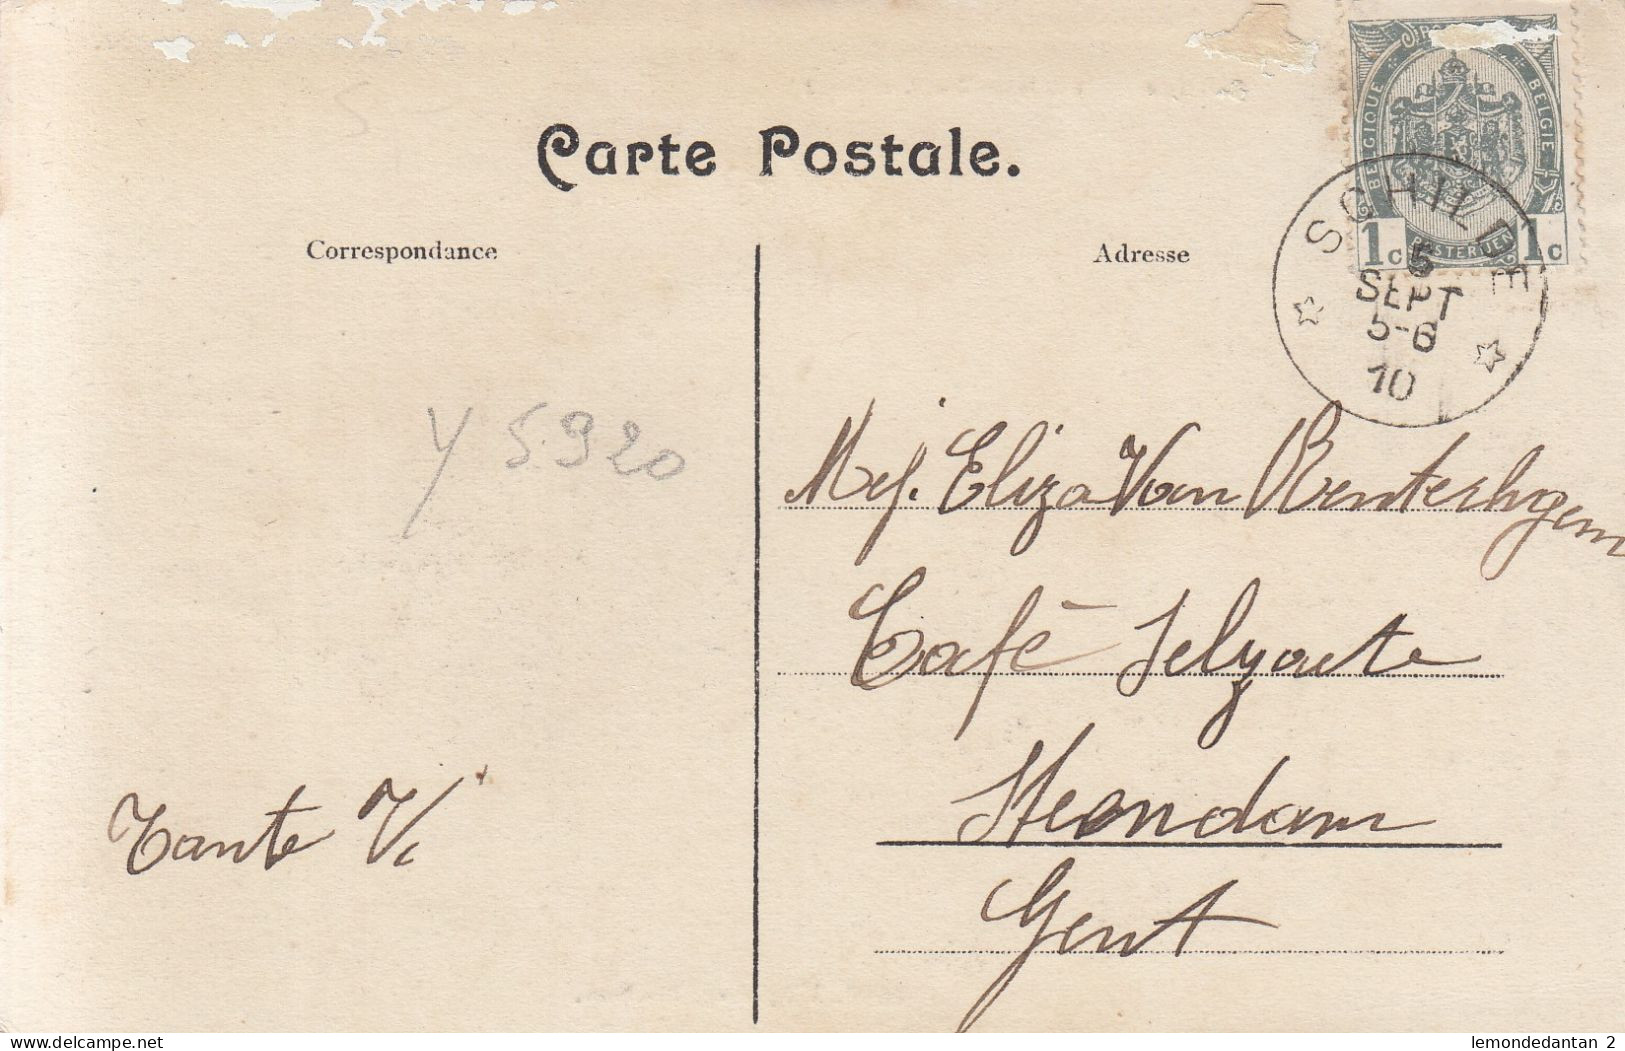 Carte Postale.
Correspondance
Adresse
BELGIQUE
BELGIE
POSTERIJEN
1c 1c
SCHILDE
5
SEPT
5-6
10
Y 5920
Mej. Eliza Van Renterhgem
Café Selzaete
Steendam
Gent
Tante V.
delcampe.net
lemondedantan 2